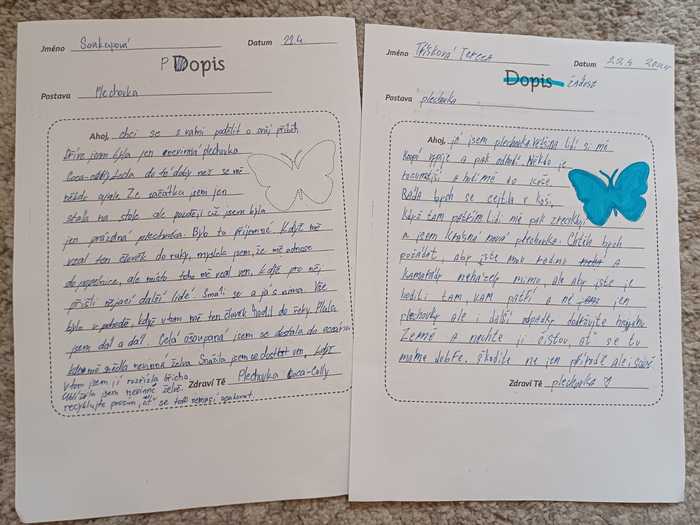 Jméno Sonkupová Datum 22.4
PDopis
Postava Plechovka
Ahoj, chci se s vámi podělit o svůj příběh
Dříve jsem byla jen nevinná plechovka
Coca-coly. Teda do té doby než se mě
někdo ujal. Ze začátku jsem jen
stála na stole ale později už jsem byla
jen prázdná plechovka. Bylo to příjemné. Když mě
vzal ten člověk do ruky, myslela jsem, že mě odnese
do popelnice, ale místo toho mě vzal ven, kde pro něj
přišli nějací další lidé. Smáli se a já s nima. Vše
bylo v pohodě, když v tom mě ten člověk hodil do řeky. Plula
jsem dál a dál. Celá osoupaná jsem se dostala do oceánu
kde mě snědla nevinná želva. Snažila jsem se dostat ven, když
v tom jsem jí rozřízla břicho.
Ublížila jsem nevinné želvě.
recyklujte prosím, ať se toto nemusí opakovat.
Zdraví Tě Plechovka Coca-Colly
Jméno Tereza Datum 22.4
Dopis žádost
Postava plechovka
Ahoj, já jsem plechovka většina lidí si mě
koupí vypije a pak odhodí. Někdo je
rozumnější a hodí mě do koše.
Ráda bych se cejtila v koši,
Když tam patřím. Lidi mě pak zrecyklují
a jsem krásná nová plechovka. Chtěla bych
požádat, aby jste mou rodinu a
kamarády neházely mimo, ale aby jste je
hodili tam, kam patří a ne jen
plechovky ale i další odpadky. hezkou
Země a nechte ji čistou, ať se tu
máme dobře. Škodíte ne jen přírodě ale i sobě
Zdraví Tě plechovka ♡